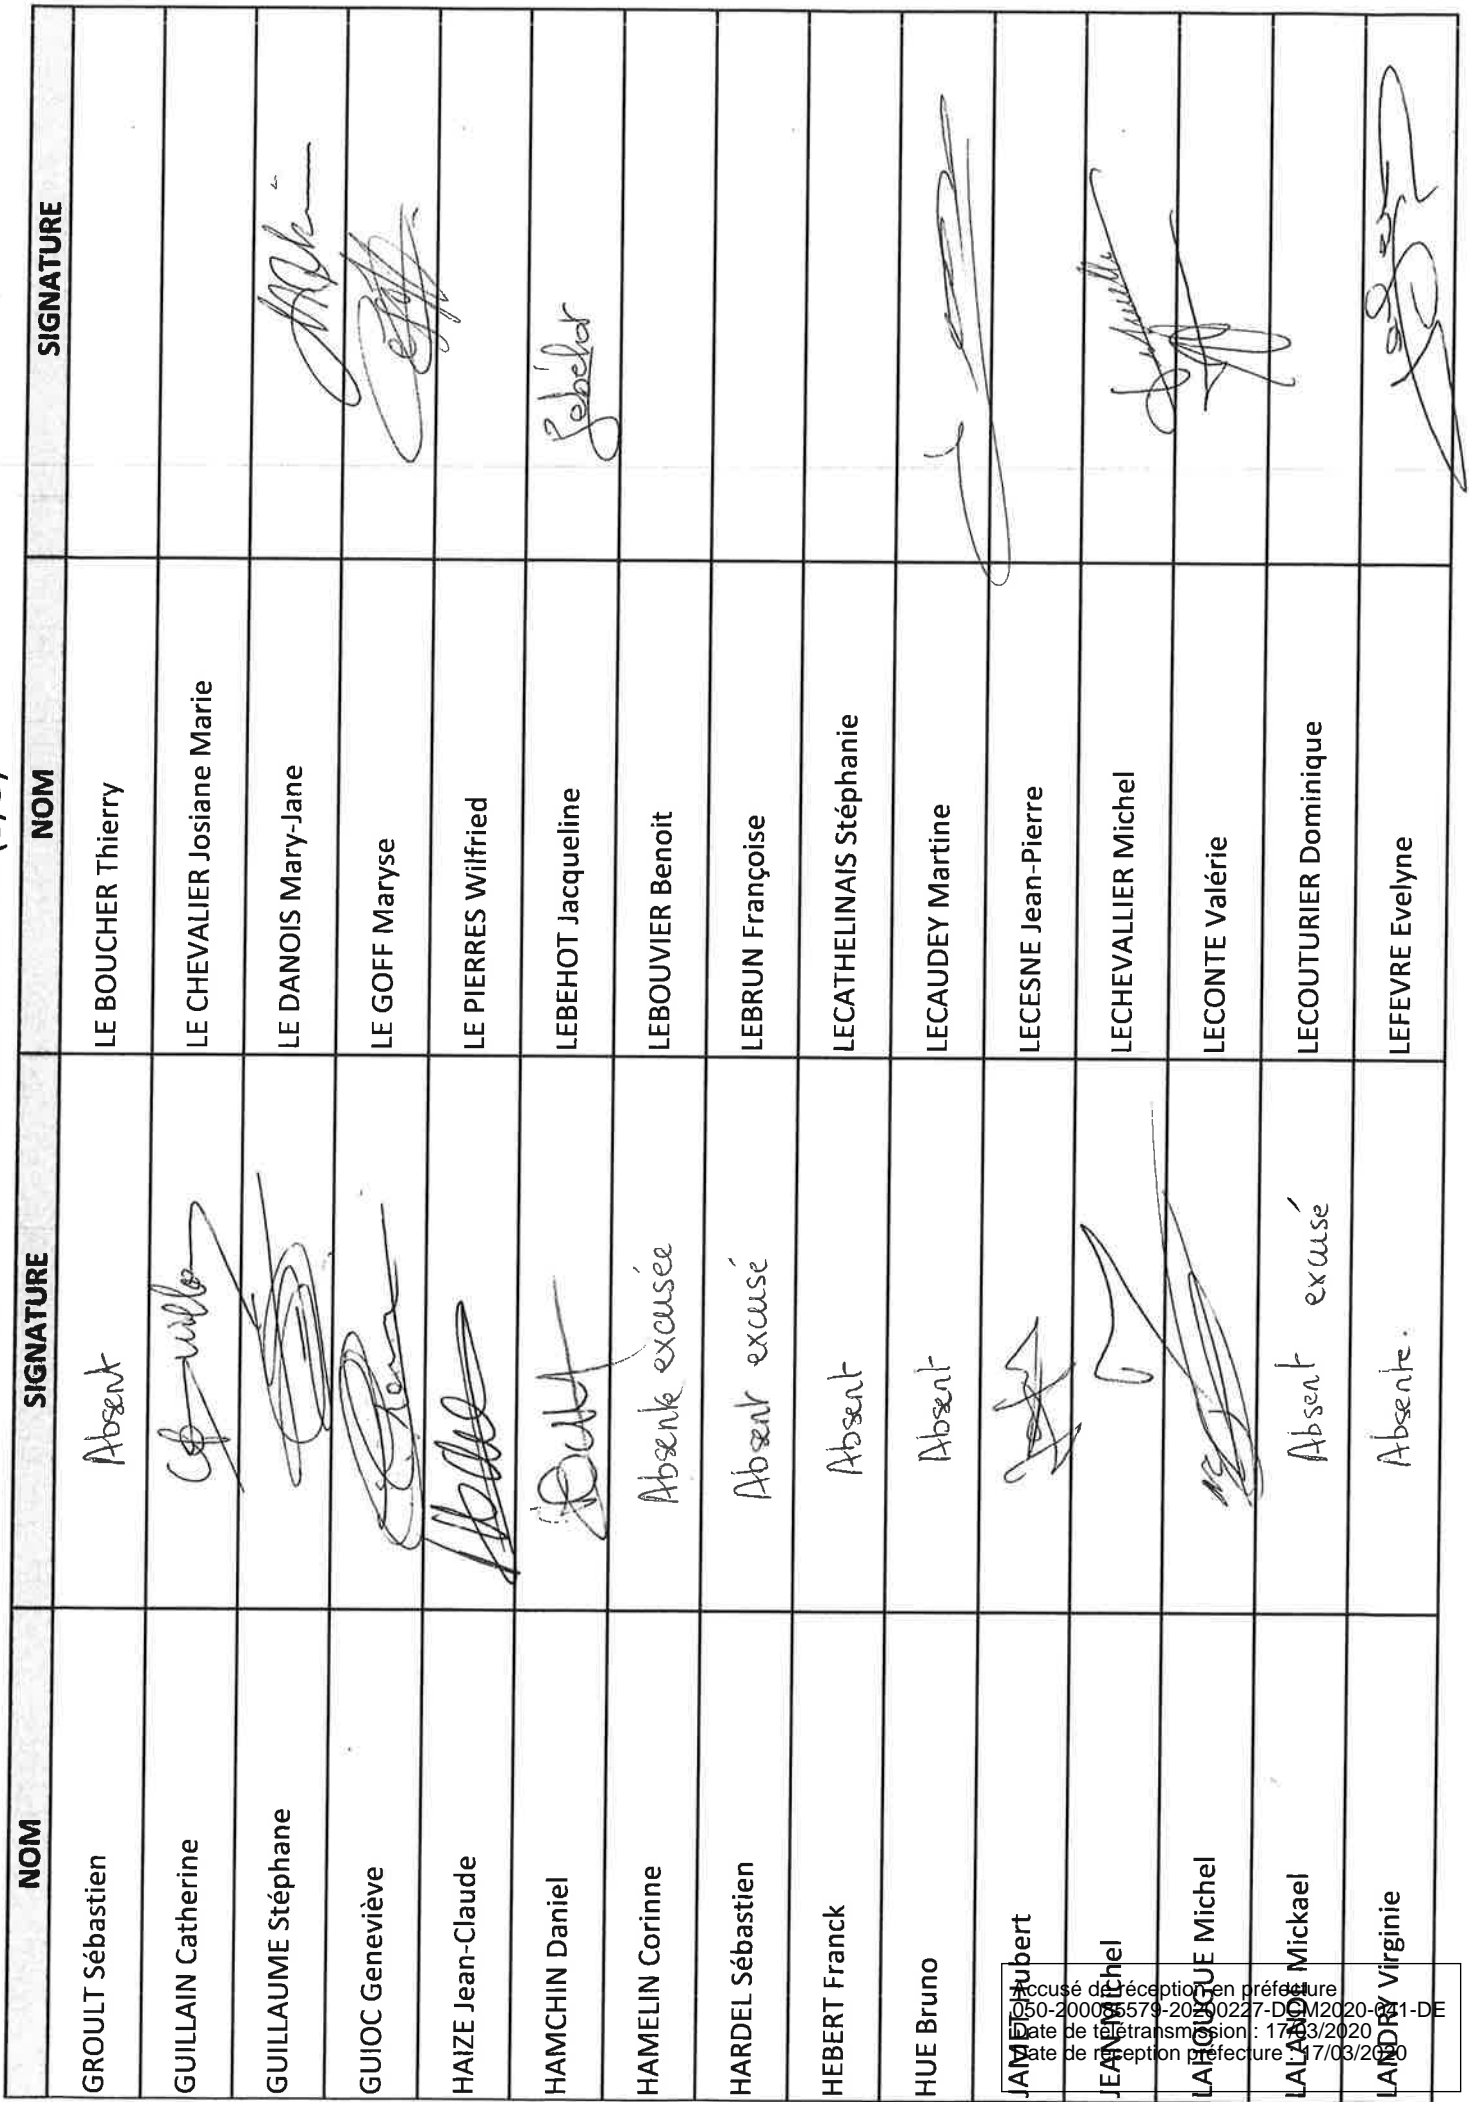 NOM SIGNATURE NOM SIGNATURE
GROULT Sébastien Absent LE BOUCHER Thierry
GUILLAIN Catherine LE CHEVALIER Josiane Marie
GUILLAUME Stéphane LE DANOIS Mary-Jane
GUIOC Geneviève LE GOFF Maryse
HAIZE Jean-Claude LE PIERRES Wilfried
HAMCHIN Daniel LEBEHOT Jacqueline
HAMELIN Corinne Absente excusée LEBOUVIER Benoit
HARDEL Sébastien Absent excusé LEBRUN Françoise
HEBERT Franck Absent LECATHELINAIS Stéphanie
HUE Bruno Absent LECAUDEY Martine
JAMET Hubert LECESNE Jean-Pierre
JEAN Michel LECHEVALLIER Michel
LAHOUGUE Michel LECONTE Valérie
LALANDE Mickael Absent excusé LECOUTURIER Dominique
LANDRY Virginie Absente. LEFEVRE Evelyne
Accusé de réception en préfecture
050-200085579-20200227-DCM2020-041-DE
Date de télétransmission : 17/03/2020
Date de réception préfecture : 17/03/2020